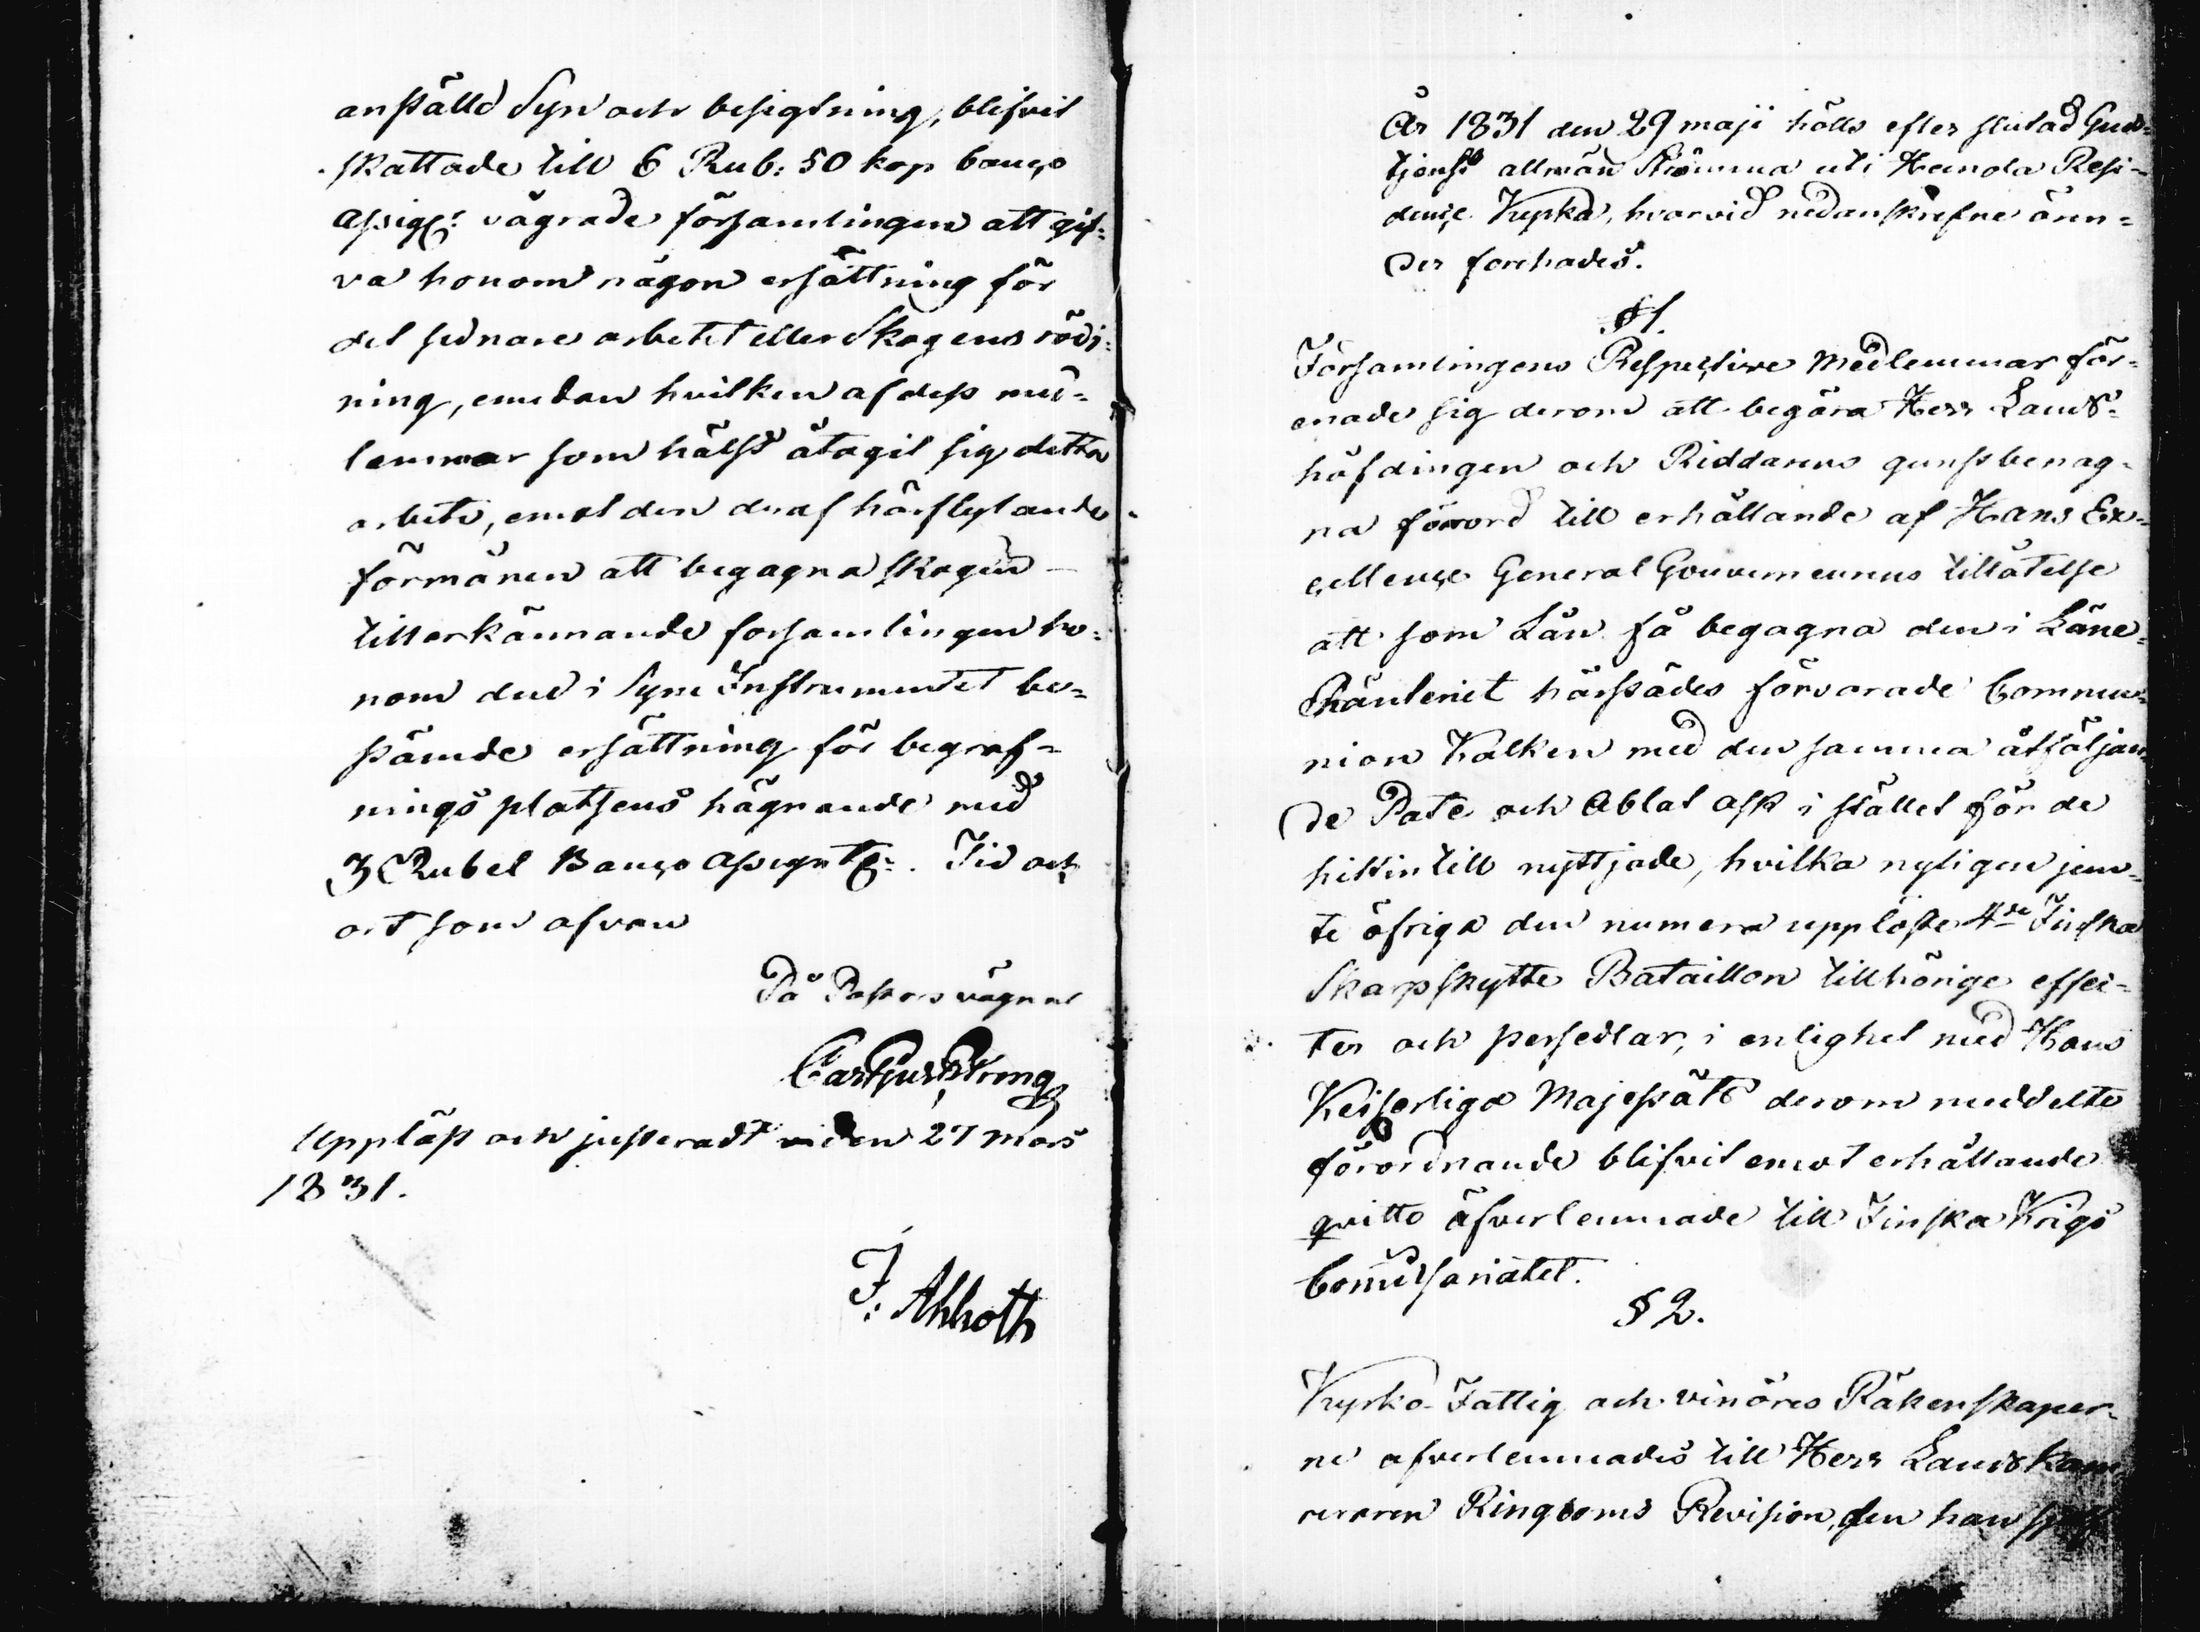 anställd Syn och besigtning, blifvit
skattade till 6 Rub: 50 kop banço
Assigr: vägrade församlingen att gif=
va honom någon ersättning för
det sednare arbetet eller Skogens rödj=
ning, emedan hvilken af dess med=
lemmar som hälst åtagit sig detta
arbete, emot den deraf härflytande
förmånen att begagna skogen –
tillerkännande forsamlingen ho=
nom den i Syne Instrumentet be=
stämde ersättning för begraf=
nings platsens hägnande med
3 Rubel Banço Assignt:. Tid och
ort som ofvan
På Pastors vägnar
Carl Gust. Strong
Uppläst och justeradt den 27 Mars
1831.
F: Ahlroth
År 1831 den 29 maji hölls efter slutad Guds=
tjenst allmän Stämma uti Heinola Resi=
dençe Kyrka, hvarvid nedanskrefne ären=
der forehades.
§ 1.
Församlingens Respective Medlemmar för=
enade sig derom att begära Herr Lands=
höfdingen och Riddarens gunstbenäg=
na förord till erhållande af Hans Ex=
cellençe General Gouverneurens tillåtelse
att som Lån få begagna den i Läne=
Ränteriet härstädes förvarade Commu=
nion Kalken med den samma åtföljan
de Paté och Ablat ask i stället för de
hittintill nyttjade, hvilka nyligen jem=
te öfriga den numera upplöste 4de Finska
Skarpskytte Bataillon tillhörige effec=
ter och persedlar, i enlighet med Hans
Keiserliga Majestäts derom meddelte
förordnande blifvit emot erhållande
qvitto öfverlemnade till Finska Krigs
Commissariatet.
§ 2.
Kyrko- Fattig och vinöres Räkenskaper=
ne öfverlemnades till Herr Lands Kam
reraren Ringboms Revision, den han